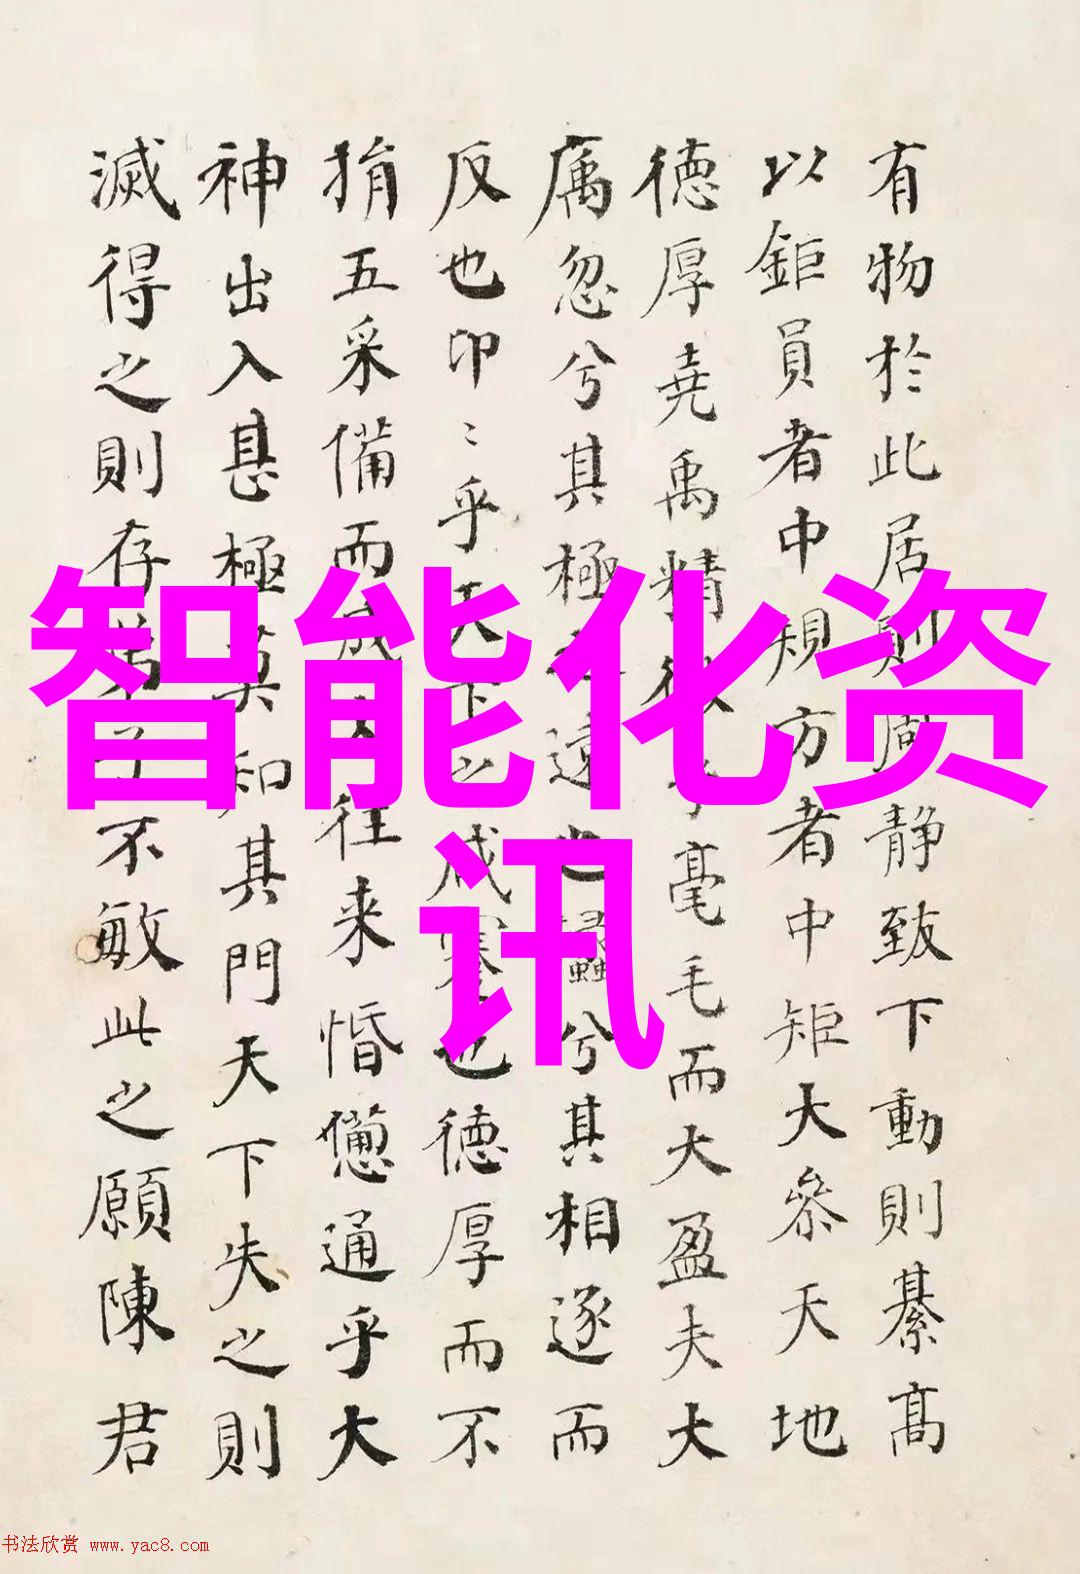 有物於此居則周靜致下動則綦高
以鉅員者中規方者中矩大參天地
德厚堯禹精微乎毫毛而大盈夫大
厲忽兮其極之遠也蠡兮其相逐而
反也卬〻乎天下之咸蹇也德厚而不
捐五采備而成文往来惛憊通乎大
神出入甚極莫知其門天下失之則
滅得之則存弟子不敏此之願陳君
智能化资
讯
书法欣赏 www.yac8.com